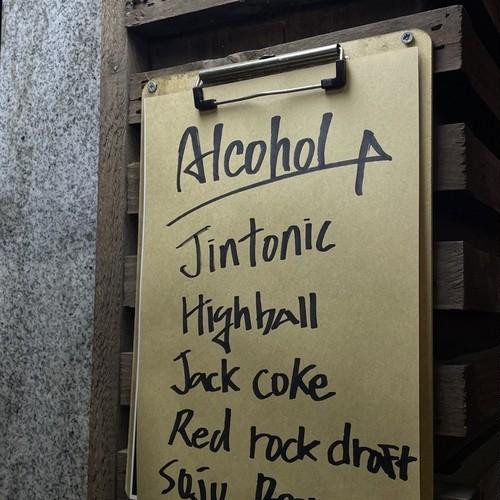 Alcohol
Jintonic
Highball
Jack coke
Red rock draft